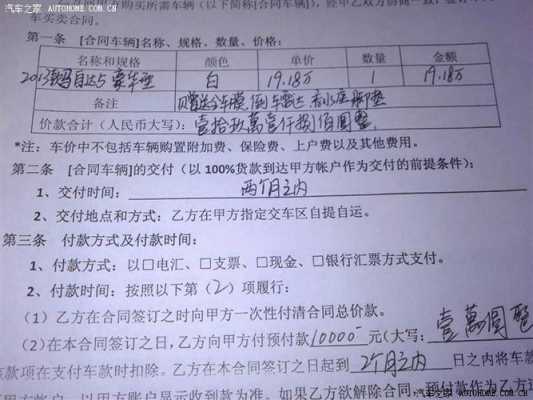 汽车之家 AUTOHOME.COM.CN
乙方向甲方购买所需车辆（以下简称[合同车辆]），经甲乙双方协商一致，签订
车买卖合同。
第一条 [合同车辆]名称、规格、数量、价格：
名称和规格 颜色 单价 数量 金额
2013款马自达5 豪华型 白 19.18万 1 19.18万
备注 贝赠送全车膜 倒车雷达 香水座 脚垫
价款合计（人民币大写）： 壹拾玖萬壹仟捌佰圆整.
*注：车价中不包括车辆购置附加费、保险费、上户费以及其他费用。
第二条 [合同车辆]的交付（以 100%货款到达甲方帐户作为交付的前提条件）：
1、交付时间： 两个月之内
2、交付地点和方式：乙方在甲方指定交车区自提自运。
第三条 付款方式及付款时间：
1、付款方式：以□电汇、□支票、□现金、□银行汇票方式支付。
2、付款时间：按照以下第（2）项履行：
（1）乙方在合同签订之时向甲方一次性付清合同总价款。
（2）在本合同签订之日，乙方向甲方付预付款10000元（大写： 壹萬圆整
该款项在支付车款时扣除。乙方在本合同签订之日起到 2个月之内 日之内将车款
甲方帐户，以甲方账户显示收到款为准。如果乙方欲解除合同，预付款作为乙方
汽车之家 AUTOHOME.COM.CN